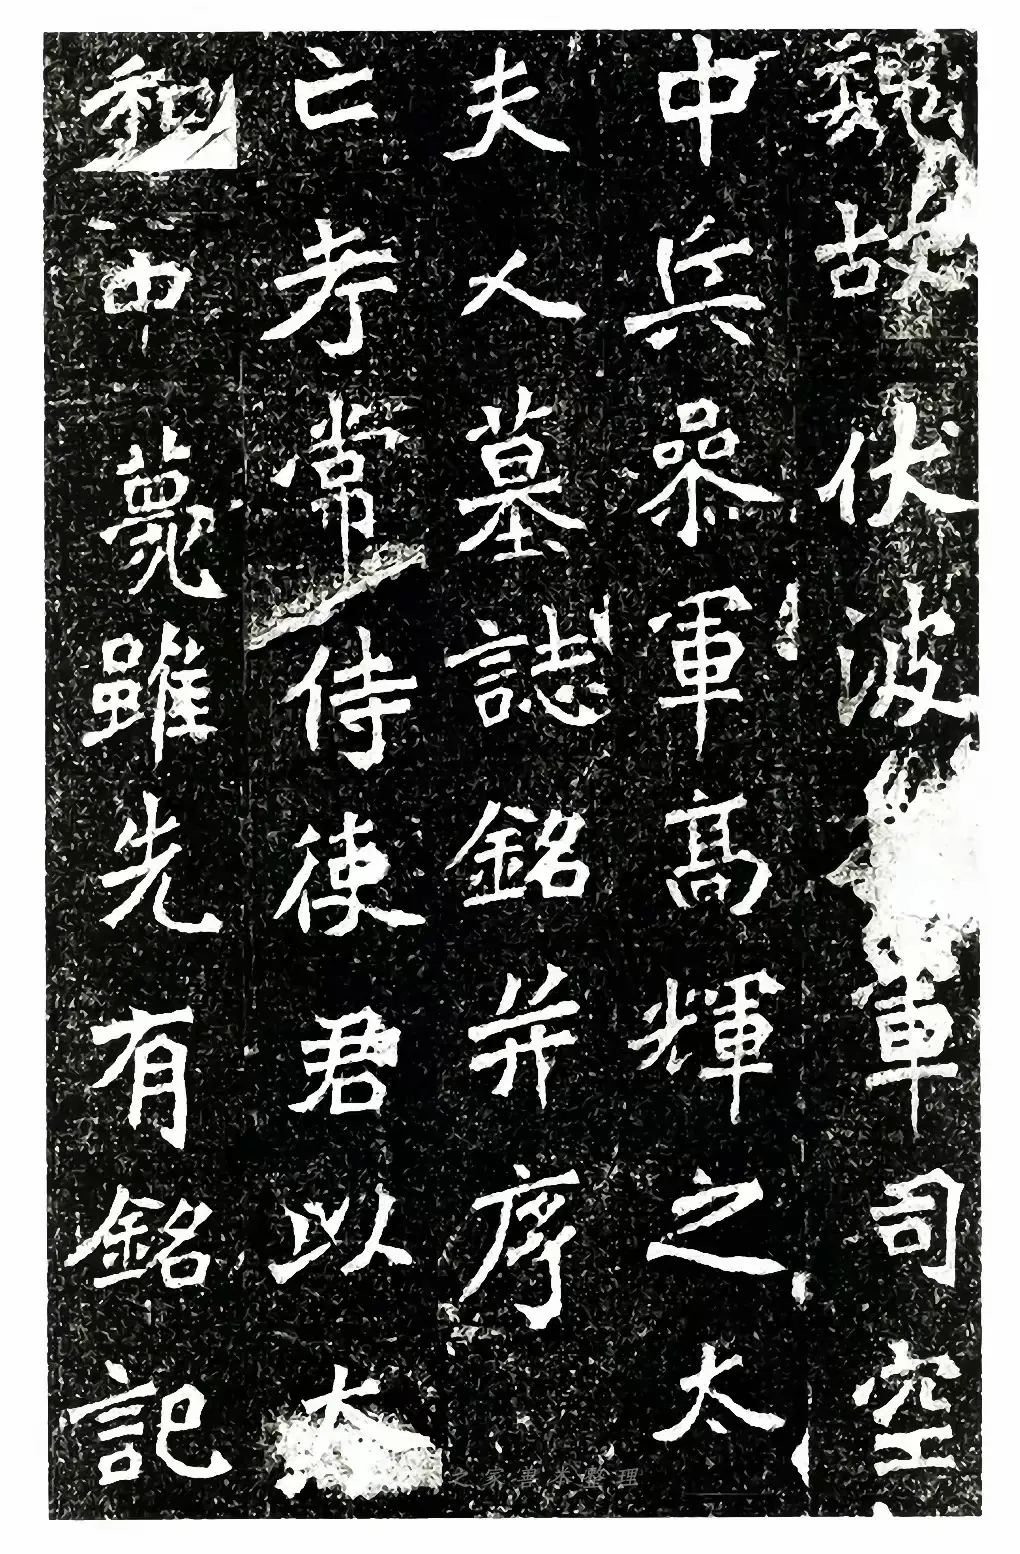 魏故伏波軍司空
中兵叅軍高輝之太
夫人墓誌銘并序
亡考常侍使君以太
和中薨雖先有銘記